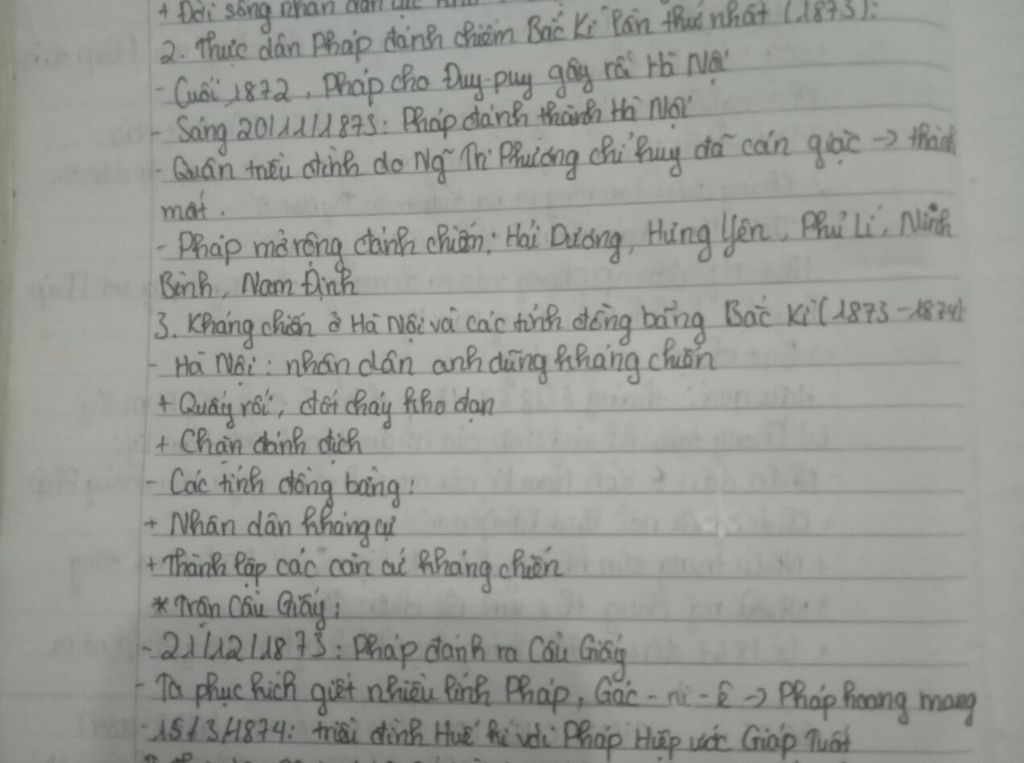 + Đời sống nhân dân cực khổ
2. Thực dân Pháp đánh chiếm Bắc Kì lần thứ nhất (1873):
- Cuối 1872, Pháp cho Đuy-puy gây rối Hà Nội
- Sáng 20/11/1873: Pháp đánh thành Hà Nội
- Quân triều đình do Ng~ Tri Phương chỉ huy đã cản giặc → thành
mất.
- Pháp mở rộng đánh chiếm: Hải Dương, Hưng Yên, Phủ Lí, Ninh
Bình, Nam Định
3. Kháng chiến ở Hà Nội và các tỉnh đồng bằng Bắc Kì (1873-1874)
- Hà Nội: nhân dân anh dũng kháng chiến
+ Quấy rối, đốt cháy kho đạn
+ Chặn đánh địch
- Các tỉnh đồng bằng:
+ Nhân dân kháng cự
+ Thành lập các căn cứ kháng chiến
* Trận Cầu Giấy:
- 21/12/1873: Pháp đánh ra Cầu Giấy
- Ta phục kích giết nhiều lính Pháp, Gác-ni-ê → Pháp hoang mang
- 15/3/1874: triều đình Huế kí với Pháp Hiệp ước Giáp Tuất